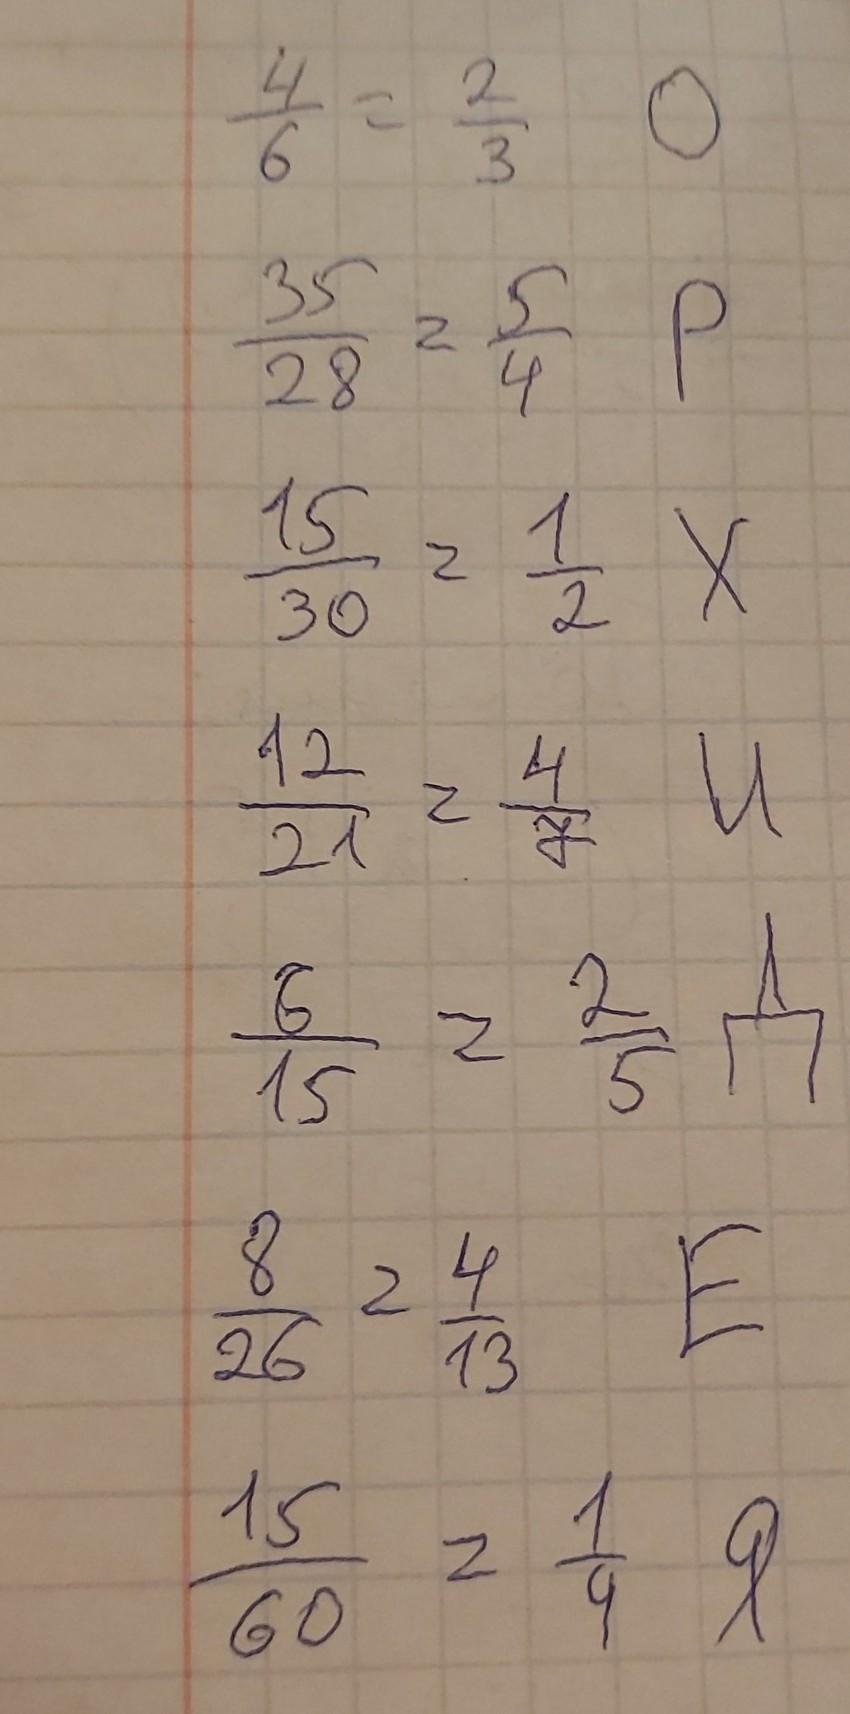 4/6 = 2/3 О
35/28 = 5/4 Р
15/30 = 1/2 Х
12/21 = 4/7 И
6/15 = 2/5 Д
8/26 = 4/13 Е
15/60 = 1/4 Я